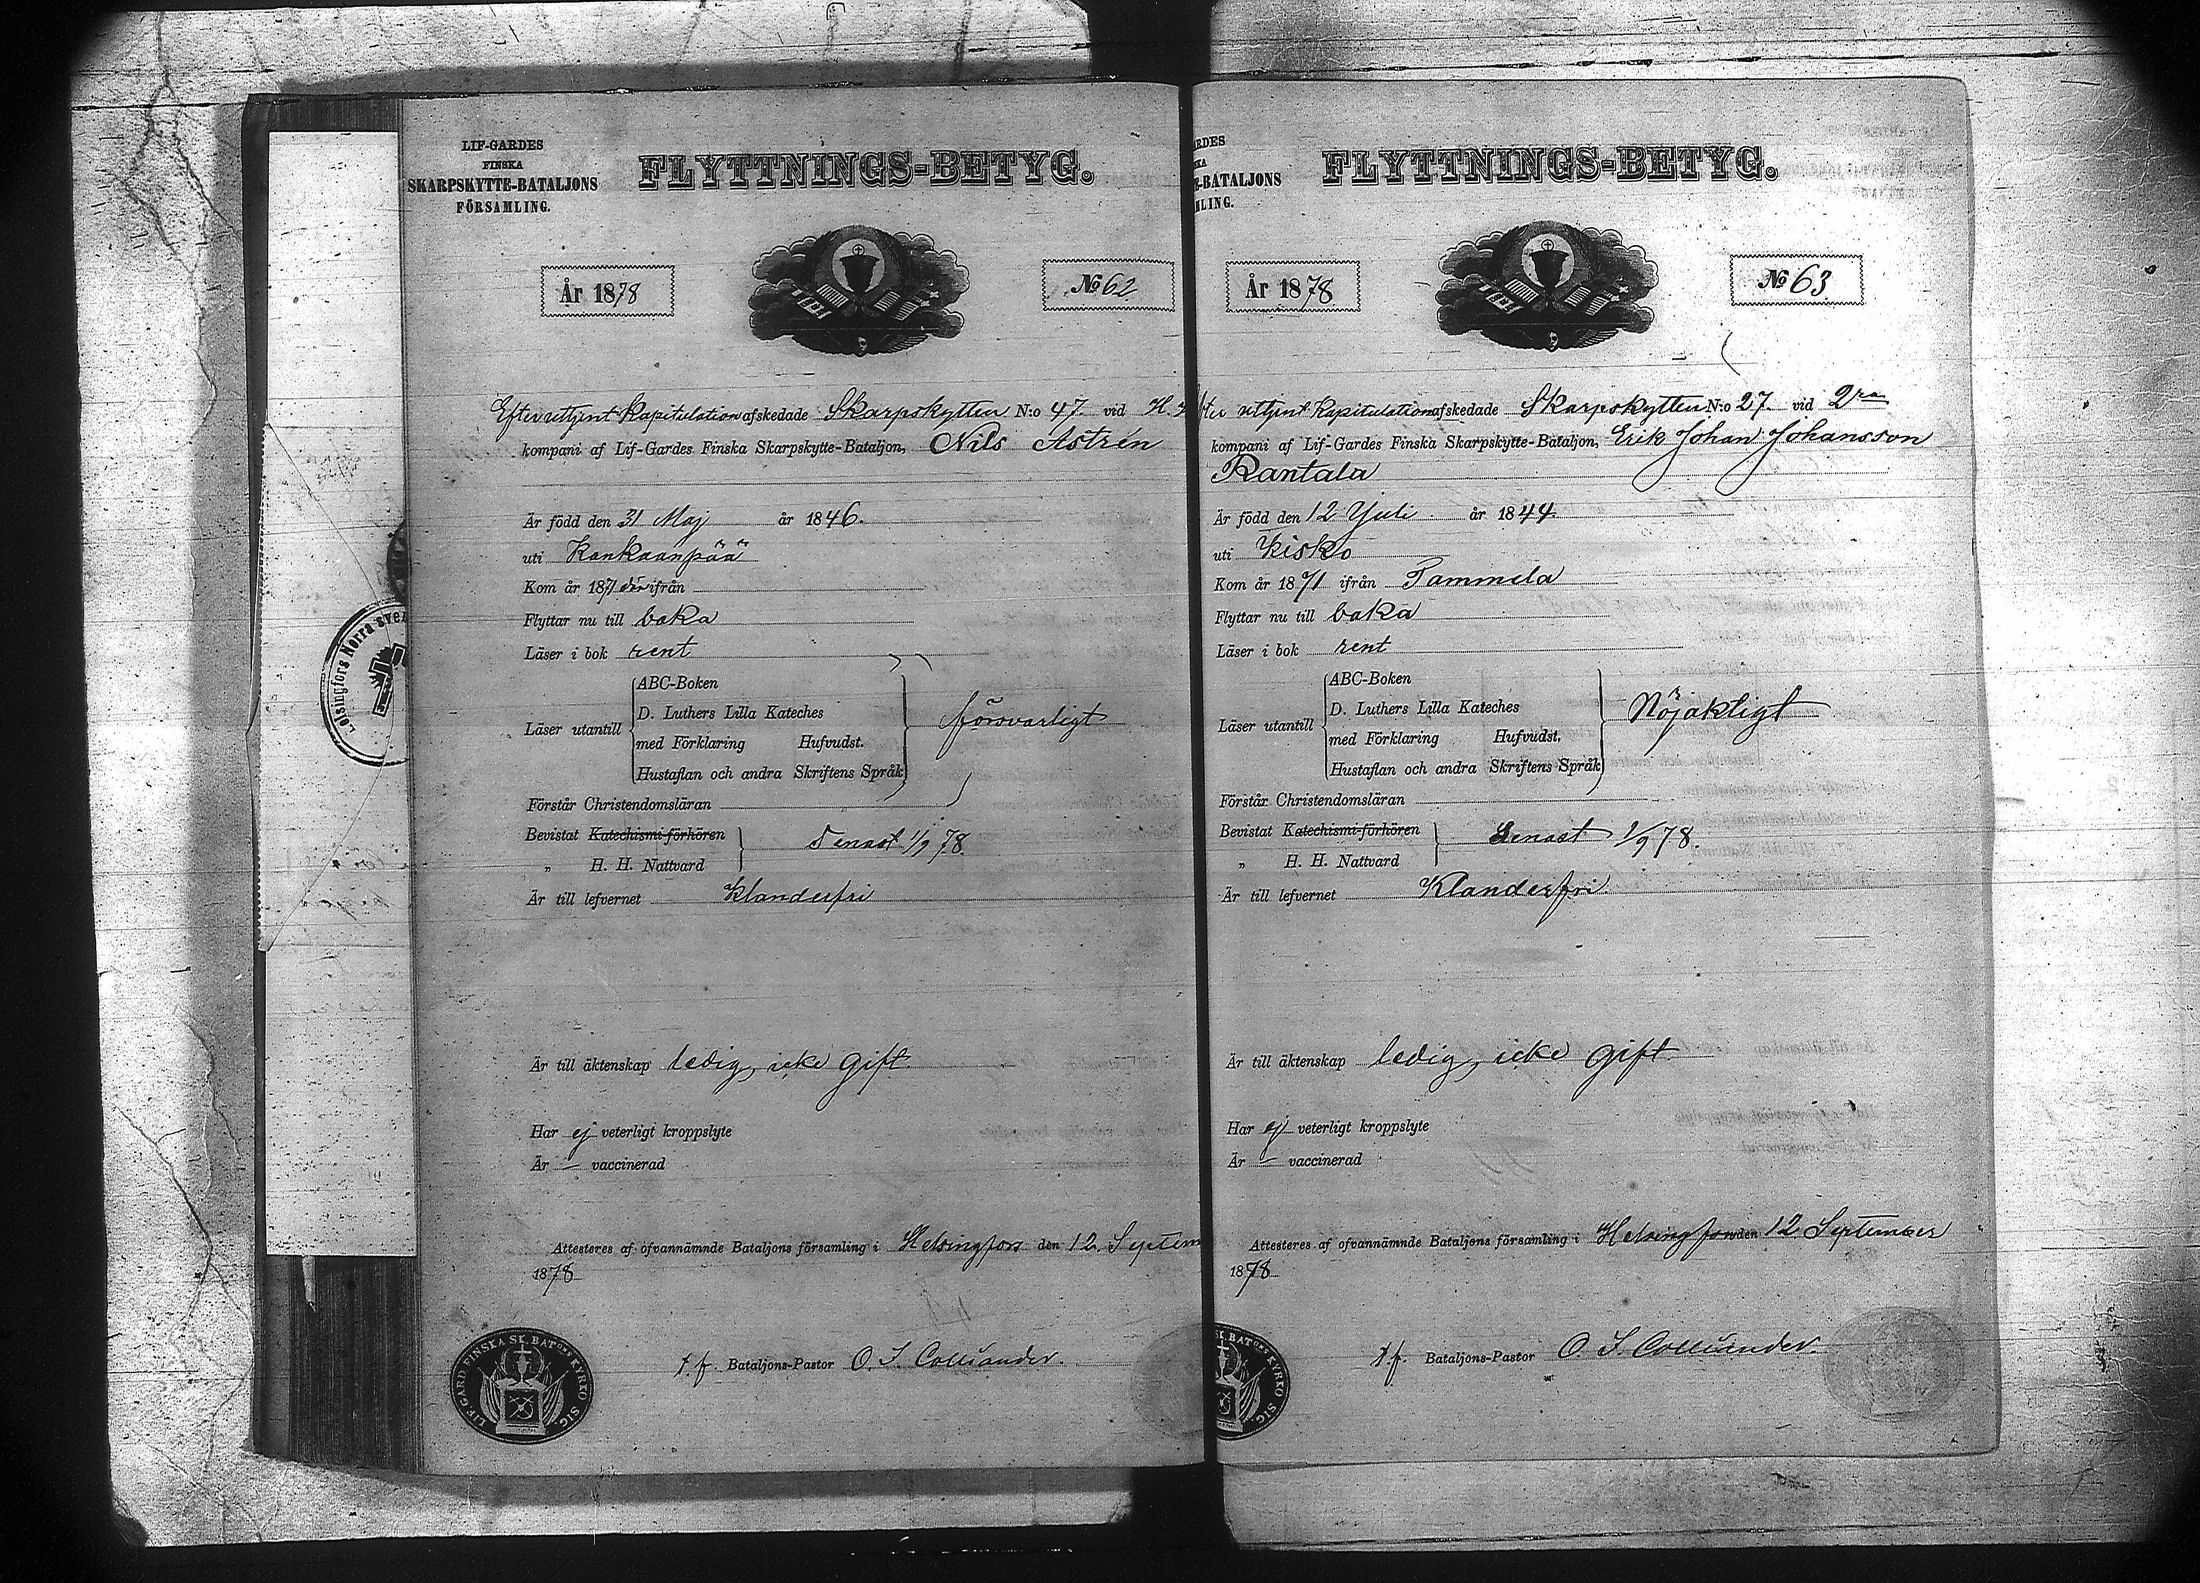 LIF-GARDES
FINSKA
SKARPSKYTTE-BATALJONS
FÖRSAMLING.
FLYTTNINGS-BETYG.
År 1878
№ 62
Efter uttjent Kapitulation afskedade Skarpskytten N:o 47. vid H.
kompani af Lif-Gardes Finska Skarpskytte-Bataljon, Nils Astrén
Är född den 31 Maj år 1846.
uti Kankaanpää
Kom år 1871 ifrån
Flyttar nu till baka
Läser i bok rent
Läser utantill
ABC-Boken
D. Luthers Lilla Kateches
med Förklaring Hufvudst.
Hustaflan och andra Skriftens Språk
försvarligt
Förstår Christendomsläran
Bevistat Katechismi-förhören
„ H. H. Nattvard
Senast 1/9 78.
Är till lefvernet Klanderfri
Är till äktenskap ledig, icke gift.
Har ej veterligt kroppslyte
Är – vaccinerad
Attesteres af ofvannämnde Bataljons församling i Helsingfors den 12 Septem
1878
t.f. Bataljons-Pastor O. I. Colliander.
LIF-GARD FINSKA SK. BATons KYRKO SIG.
Helsingfors Norra sve
RDES
KA
E-BATALJONS
MLING.
FLYTTNINGS-BETYG.
År 1878
№ 63
fter uttjent Kapitulation afskedade Skarpskytten N:o 27. vid 2ra
kompani af Lif-Gardes Finska Skarpskytte-Bataljon, Erik Johan Johansson
Rantala
Är född den 12 Juli år 1844.
uti Kisko
Kom år 1871 ifrån Tammela
Flyttar nu till baka
Läser i bok rent
Läser utantill
ABC-Boken
D. Luthers Lilla Kateches
med Förklaring Hufvudst.
Hustaflan och andra Skriftens Språk
Nöjaktigt
Förstår Christendomsläran
Bevistat Katechismi-förhören
„ H. H. Nattvard
Senast 1/9 78.
Är till lefvernet Klanderfri
Är till äktenskap ledig, icke gift.
Har ej veterligt kroppslyte
Är – vaccinerad
Attesteres af ofvannämnde Bataljons församling i Helsingfors den 12 September
1878
t.f. Bataljons-Pastor O. I. Colliander.
SK. BATons KYRKO SIG.